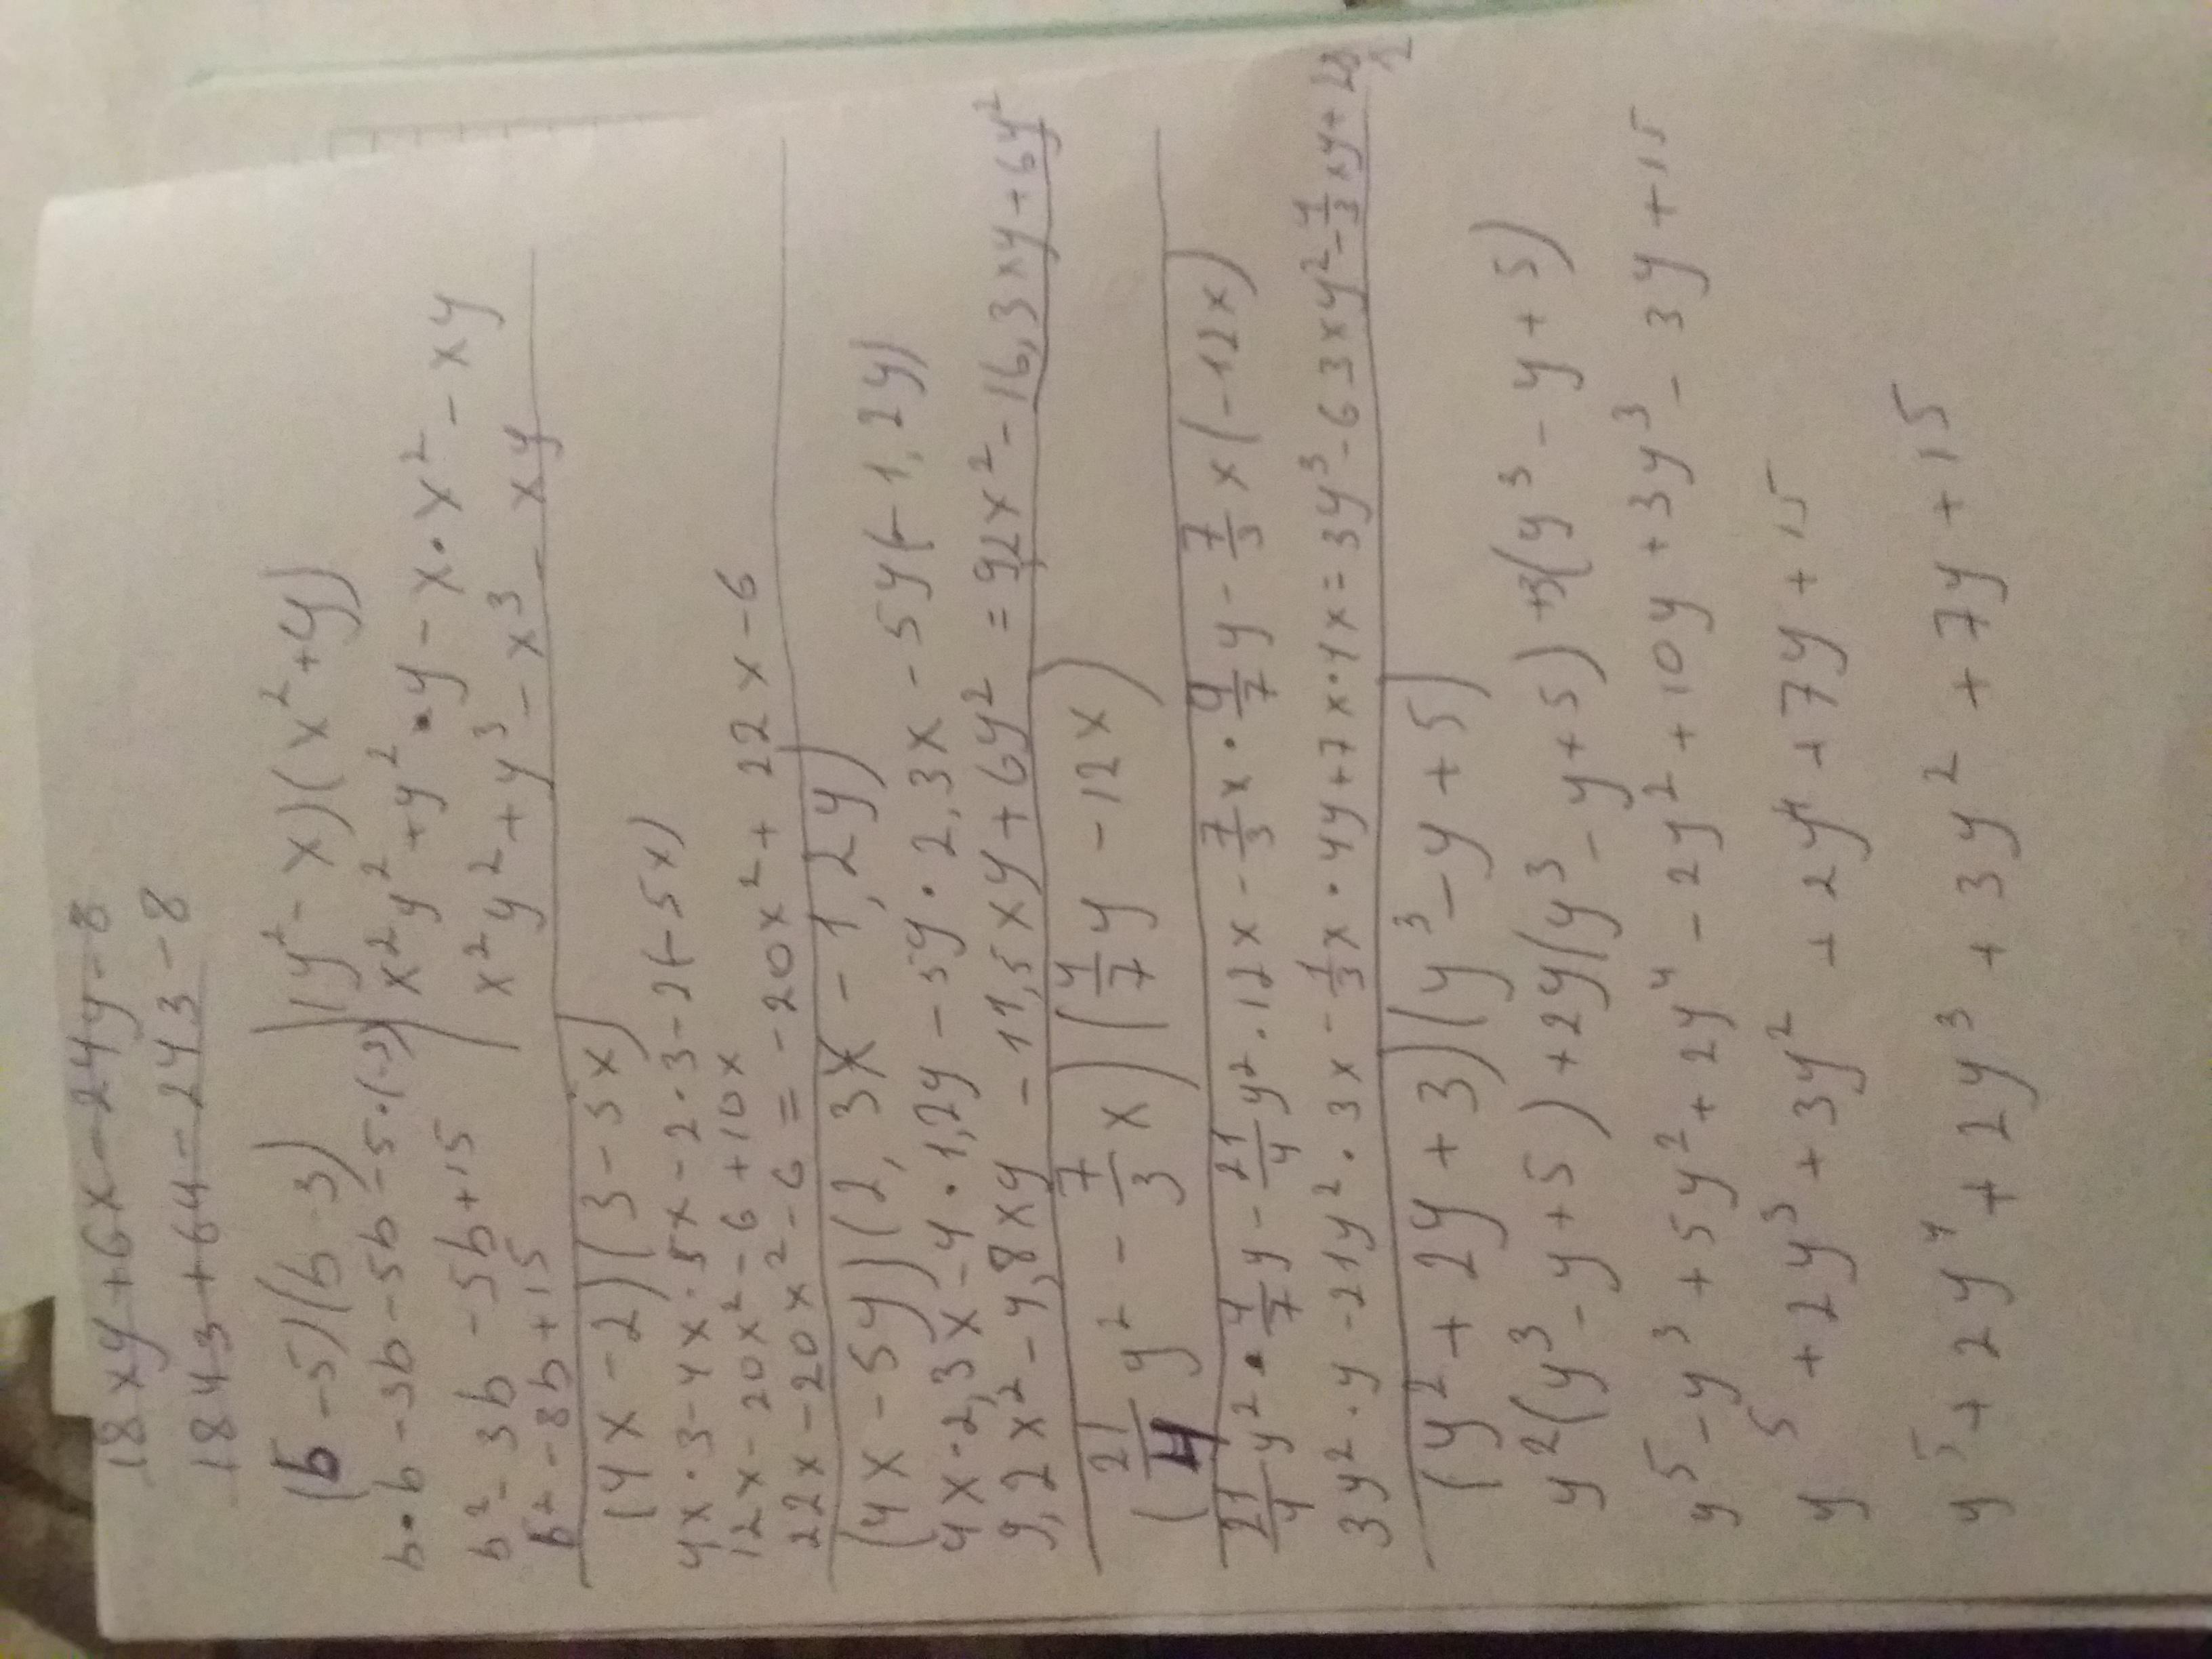 18xy+6x-24y-8
18y3+6y-243-8
(b-5)(b-3)
b•b-3b-5b-5•(-3)
b²-3b-5b+15
b²-8b+15
(y²-x)(x²+y)
x²y²+y²•y-x•x²-xy
x²y²+y³-x³-xy
(4x-2)(3-5x)
4x•3-4x•5x-2•3-2(-5x)
12x-20x²-6+10x
22x-20x²-6=-20x²+22x-6
(4x-5y)(2,3x-1,2y)
4x•2,3x-4•1,2y-5y•2,3x-5y(-1,2y)
9,2x²-4,8xy-11,5xy+6y²=92x²-16,3xy+6y²
(21/4 y²-7/3 x)(4/7 y-12x)
21/4 y²•4/7 y-21/4 y²•12x-7/3 x•4/7 y-7/3 x(-12x)
3y²•y-21y²•3x-1/3 x•4y+7x•4x=3y³-63xy²-4/3 xy+
(y²+2y+3)(y³-y+5)
y²(y³-y+5)+2y(y³-y+5)+3(y³-y+5)
y⁵-y³+5y²+2y⁴-2y²+10y+3y³-3y+15
y⁵+2y³+3y²+2y⁴+7y+15
y⁵+2y⁴+2y³+3y²+7y+15